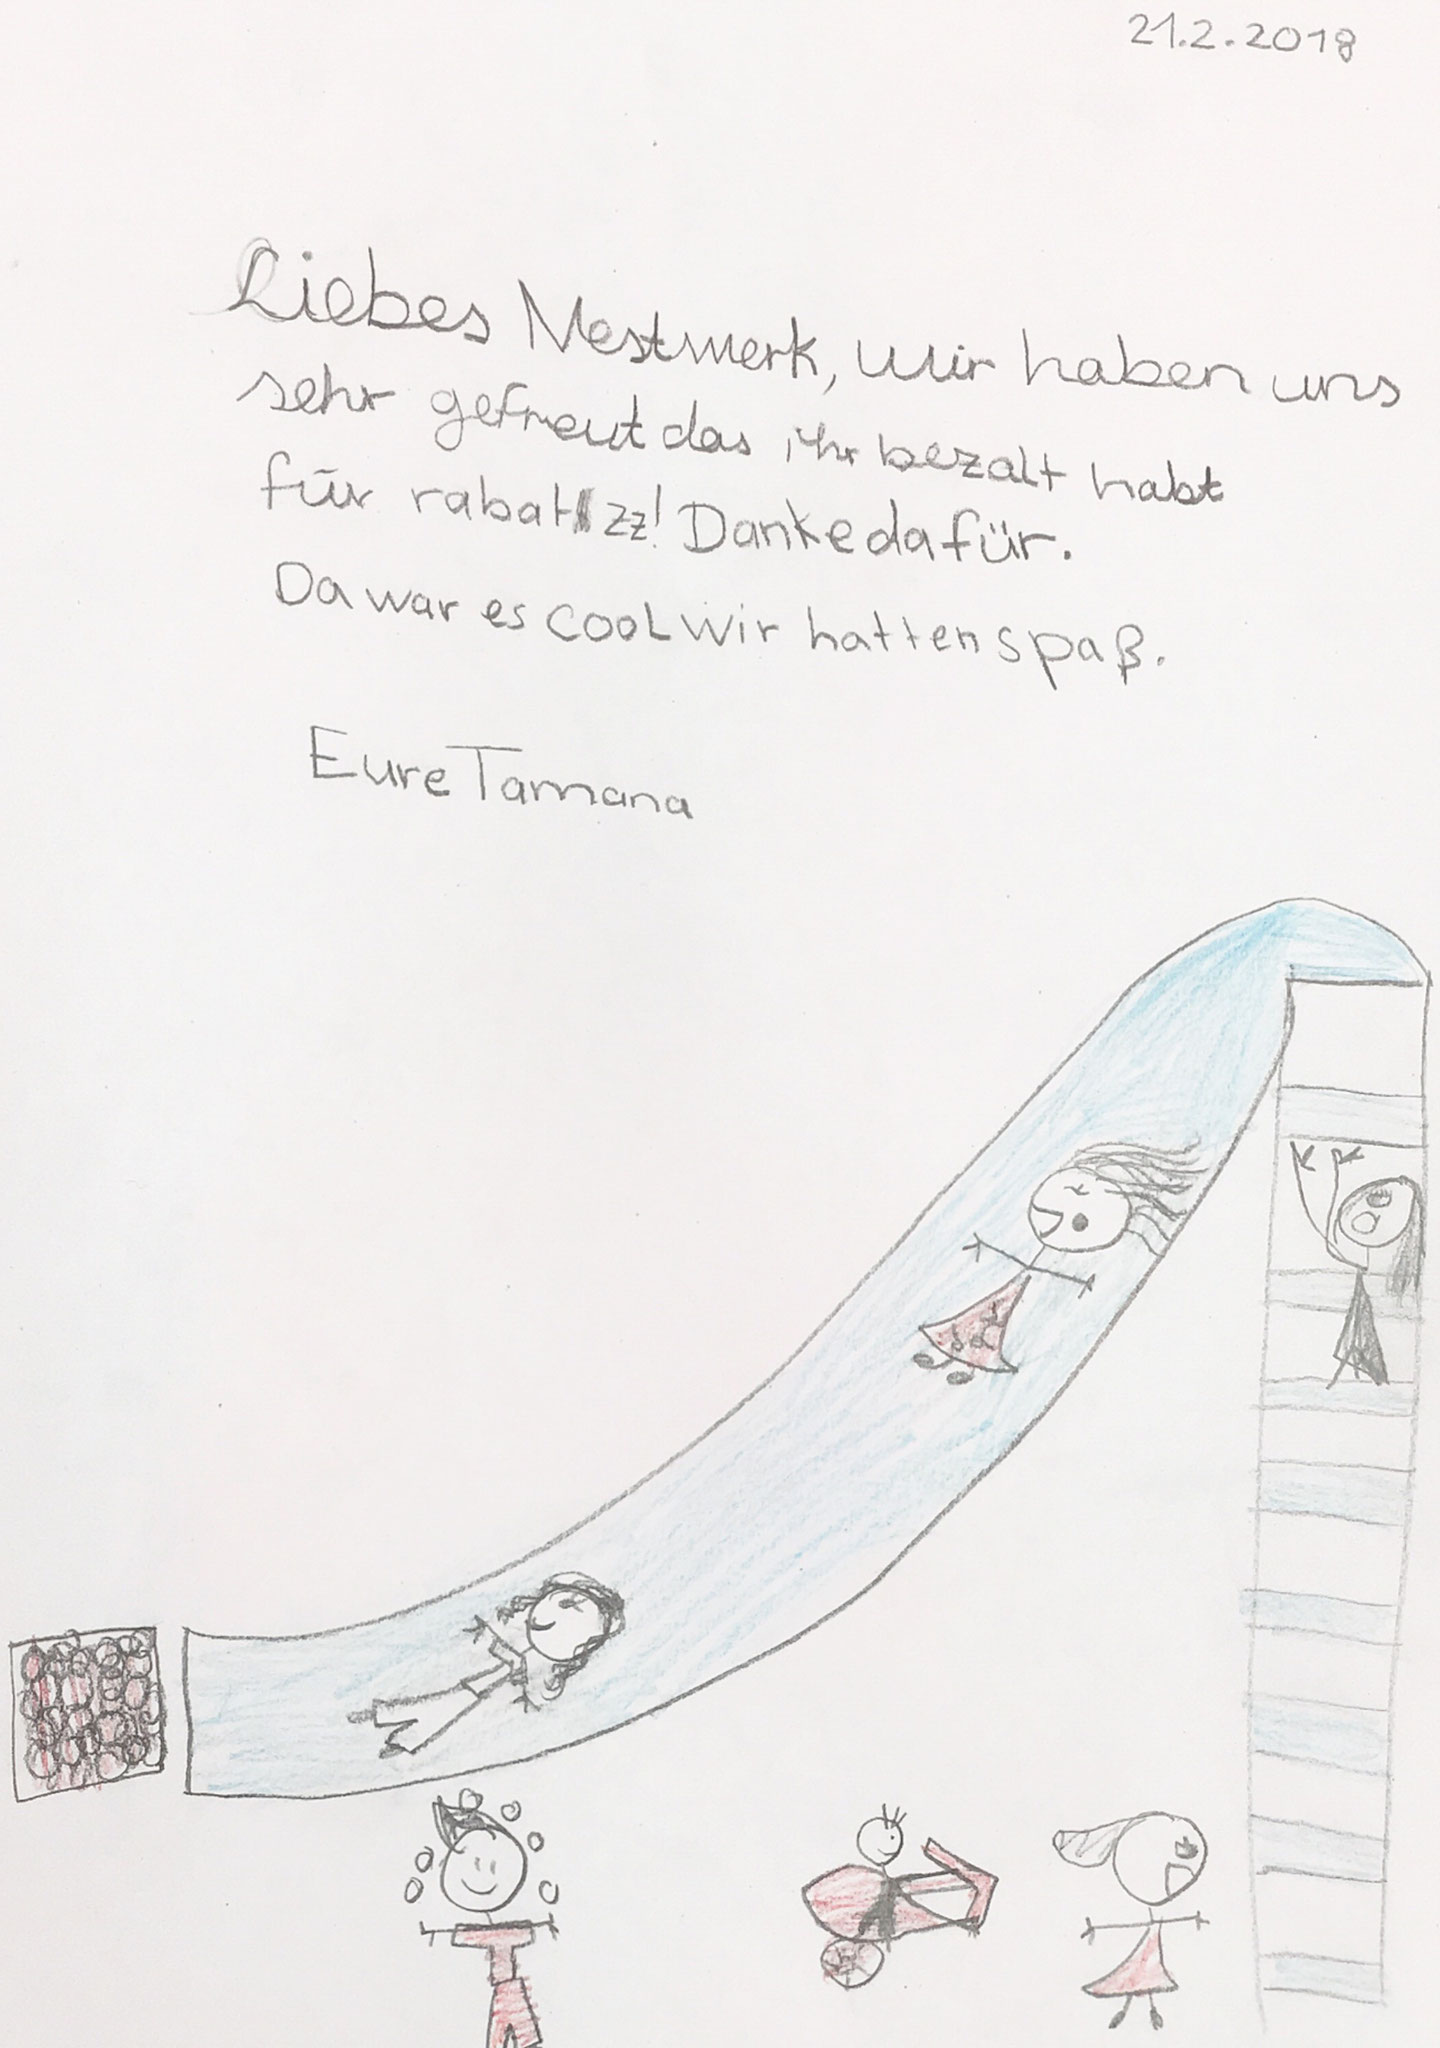 21.2.2018
Liebes Nestwerk, wir haben uns
sehr gefreut das ihr bezalt habt
für rabatzz! Danke dafür.
Da war es cool wir hatten spaß.
Eure Tamana